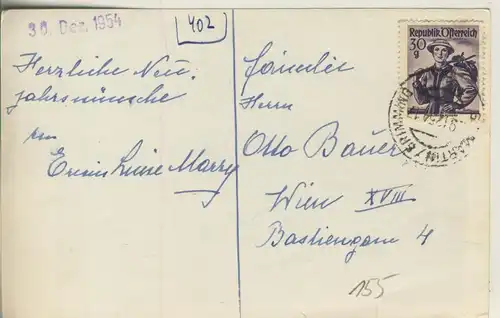 30. Dez. 1954
402
Republik Österreich
30
g
Herzliche Neu-
jahrswünsche
von
Luise Marzy
Familie
Herrn
Otto Bauer
Wien XVIII
Bastiengasse 4
155